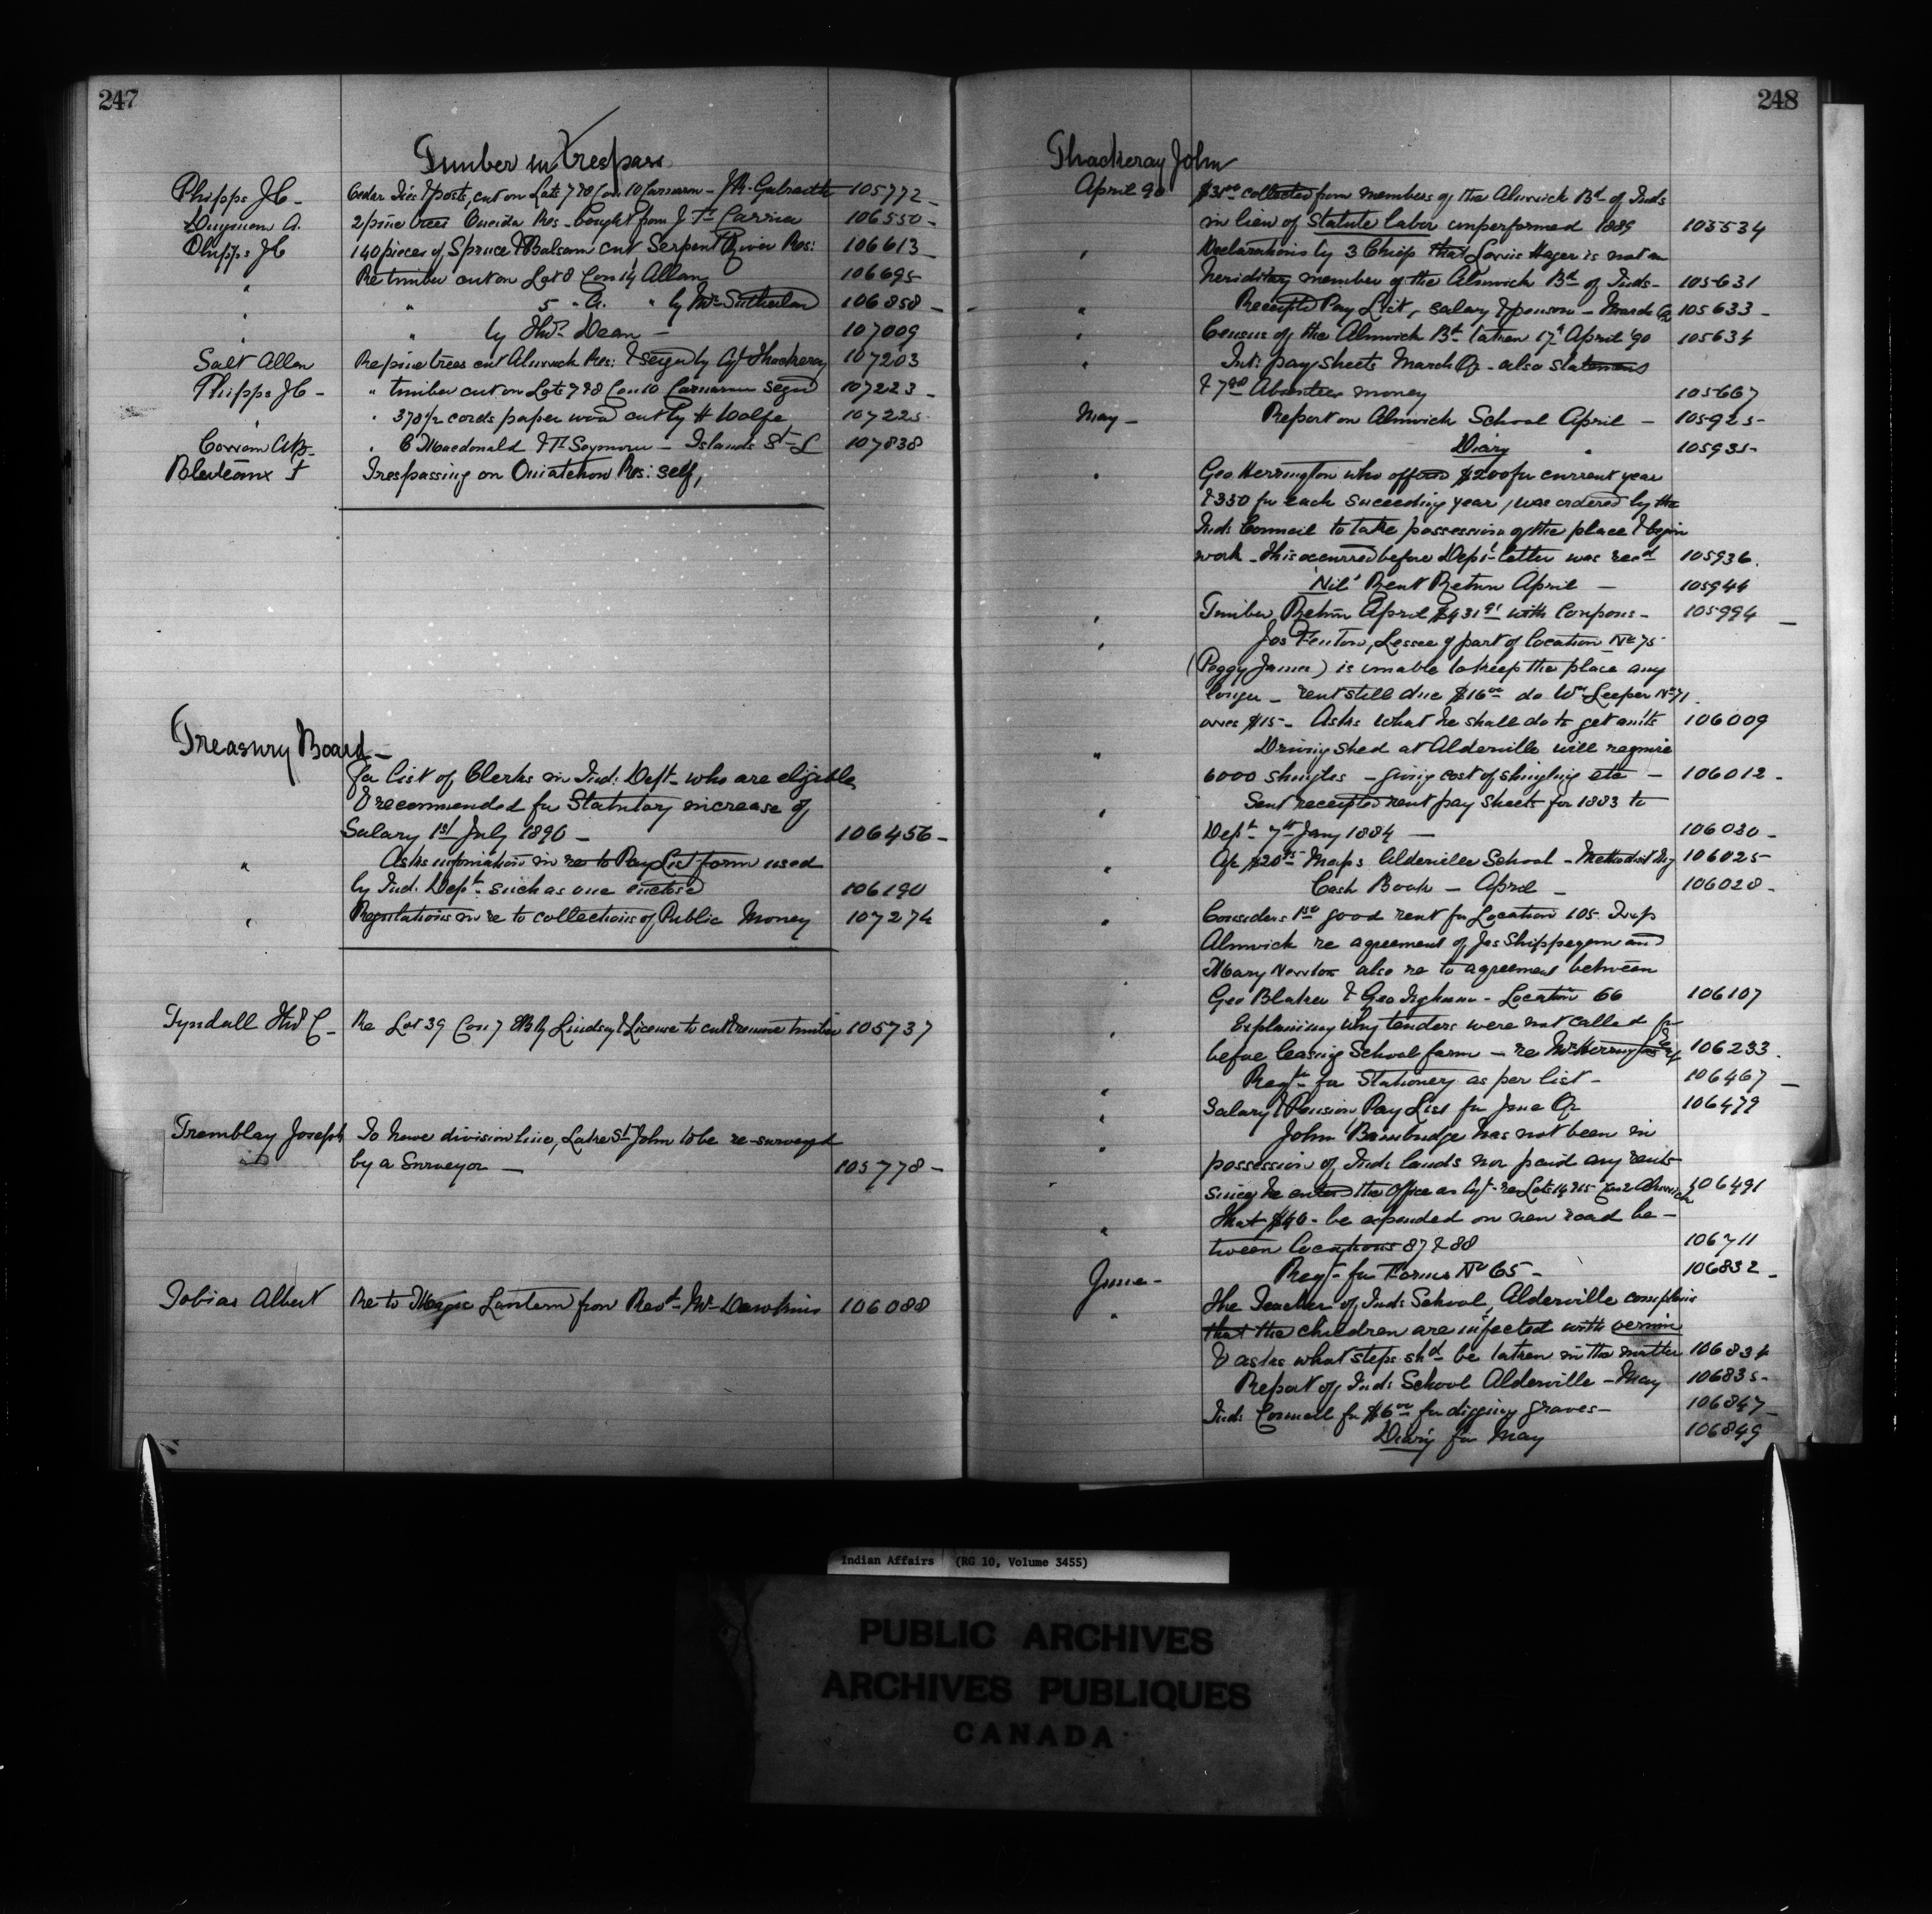 247
Timber in Trespass
Phipps J C - Cedar Ties & posts, cut on Lots 7 & 8 Con 10 Carnarvon - J R Galbraith 105772 -
A. 2 pine trees Oneida Res - bought from J T Carrier 106550 -
Phipps J C 140 pieces of Spruce & Balsam cut Serpent River Res: 106613 -
" Re timber cut on Lot 8 Con 14 Allan 106695
" " 5 " A. " by Mr Sutherland 106858 -
" " by Thos Dean - 107009
Salt Allen Re pine trees cut Alnwick Res: & seized by Agt Thackeray 107203
Phipps J C - " timber cut on Lots 7 & 8 Con 10 Carnarvon seized 107223 -
" " 378½ cords paper wood cut by H Wolfe 107225
" C Macdonald & H Seymour - Islands St L 107838
Trespassing on Ouiatchouan Res: self,
Treasury Board -
For list of Clerks in Ind: Dept - who are eligible
& recommended for Statutory increase of
Salary 1st July 1890 - 106456 -
" Asks information in re to Pay List form used
by Ind. Dept such as one enclosed 106190
" Regulations in re to collections of Public Money 107274
Tyndall Thos C - Re Lot 39 Con 7 EBR Lindsay & License to cut & remove timber 105737
Tremblay Joseph To have division line, Lake St John to be re-surveyed
by a Surveyor - 105778 -
Tobias Albert Re to Magic Lantern from Revd Mr Dawkins 106088
248
Thackeray John
April 90 $31.00 collected from members of the Alnwick Bd of Inds
in lieu of Statute labor unperformed 1889 105534
" Declarations by 3 Chiefs that Lewis Hager is not an
hereditary member of the Alnwick Bd of Inds - 105631
" Receipted Pay List, salary & pension - March Qr 105633 -
" Census of the Alnwick Bd taken 17th April '90 105634
" Int: pay sheets March Qr - also statement
& 7.90 Absentees money 105667
May - Report on Alnwick School April - 105925 -
Diary " 105935 -
" Geo Herrington who offered $200 for current year
& 350 for each succeeding year, was ordered by the
Inds Council to take possession of the place & begin
work - this occurred before Dept letter was recd 105936.
'Nil' Rent Return April - 105944
" Timber Return April $431.91 with Coupons - 105994 -
" Jos Fenton, Lessee of part of location No 75
(Peggy James) is unable to keep the place any
longer - rent still due $16.00 do Wm Leeper No 71
owes $15 - Asks what he shall do to get amts 106009
" Driving shed at Alderville will require
6000 shingles - giving cost of shingling etc - 106012 -
" Sent receipted rent pay sheets for 1883 to
Dept 7th Jany 1884 - 106020 -
" Maps Alderville School - Methodist 106025
Cash Book - April - 106028 -
" Considers good rent for Location 105
Alnwick re agreement of Jas Shippegun and
Mary Newton also re to agreement between
" Geo Blaker & Geo - Location 66 106107
" Explaining why tenders were not called for
before leasing School farm - re Mr Herrington 106233.
" Reqn for Stationery as per list - 106467 -
" Salary & Pension Pay List for June Qr 106479
" John Bainbridge has not been in
possession of Inds lands nor paid any rents
since he entered the Office as Agt - re Lots 14 & 15 Con 2 Alnwick 106491
" That $40 - be expended on new road be -
tween locations 87 & 88 106711
June - Reqn - for Forms No 65 - 106832 -
" The Teacher of Inds School, Alderville complains
that the children are infected with vermin
& asks what steps shd be taken in the matter 106834
Report of Inds School Alderville - May 106835 -
Inds Council for $6.00 for digging graves - 106847 -
Diary for May 106849
Indian Affairs (RG 10, Volume 3455)
PUBLIC ARCHIVES
ARCHIVES PUBLIQUES
CANADA